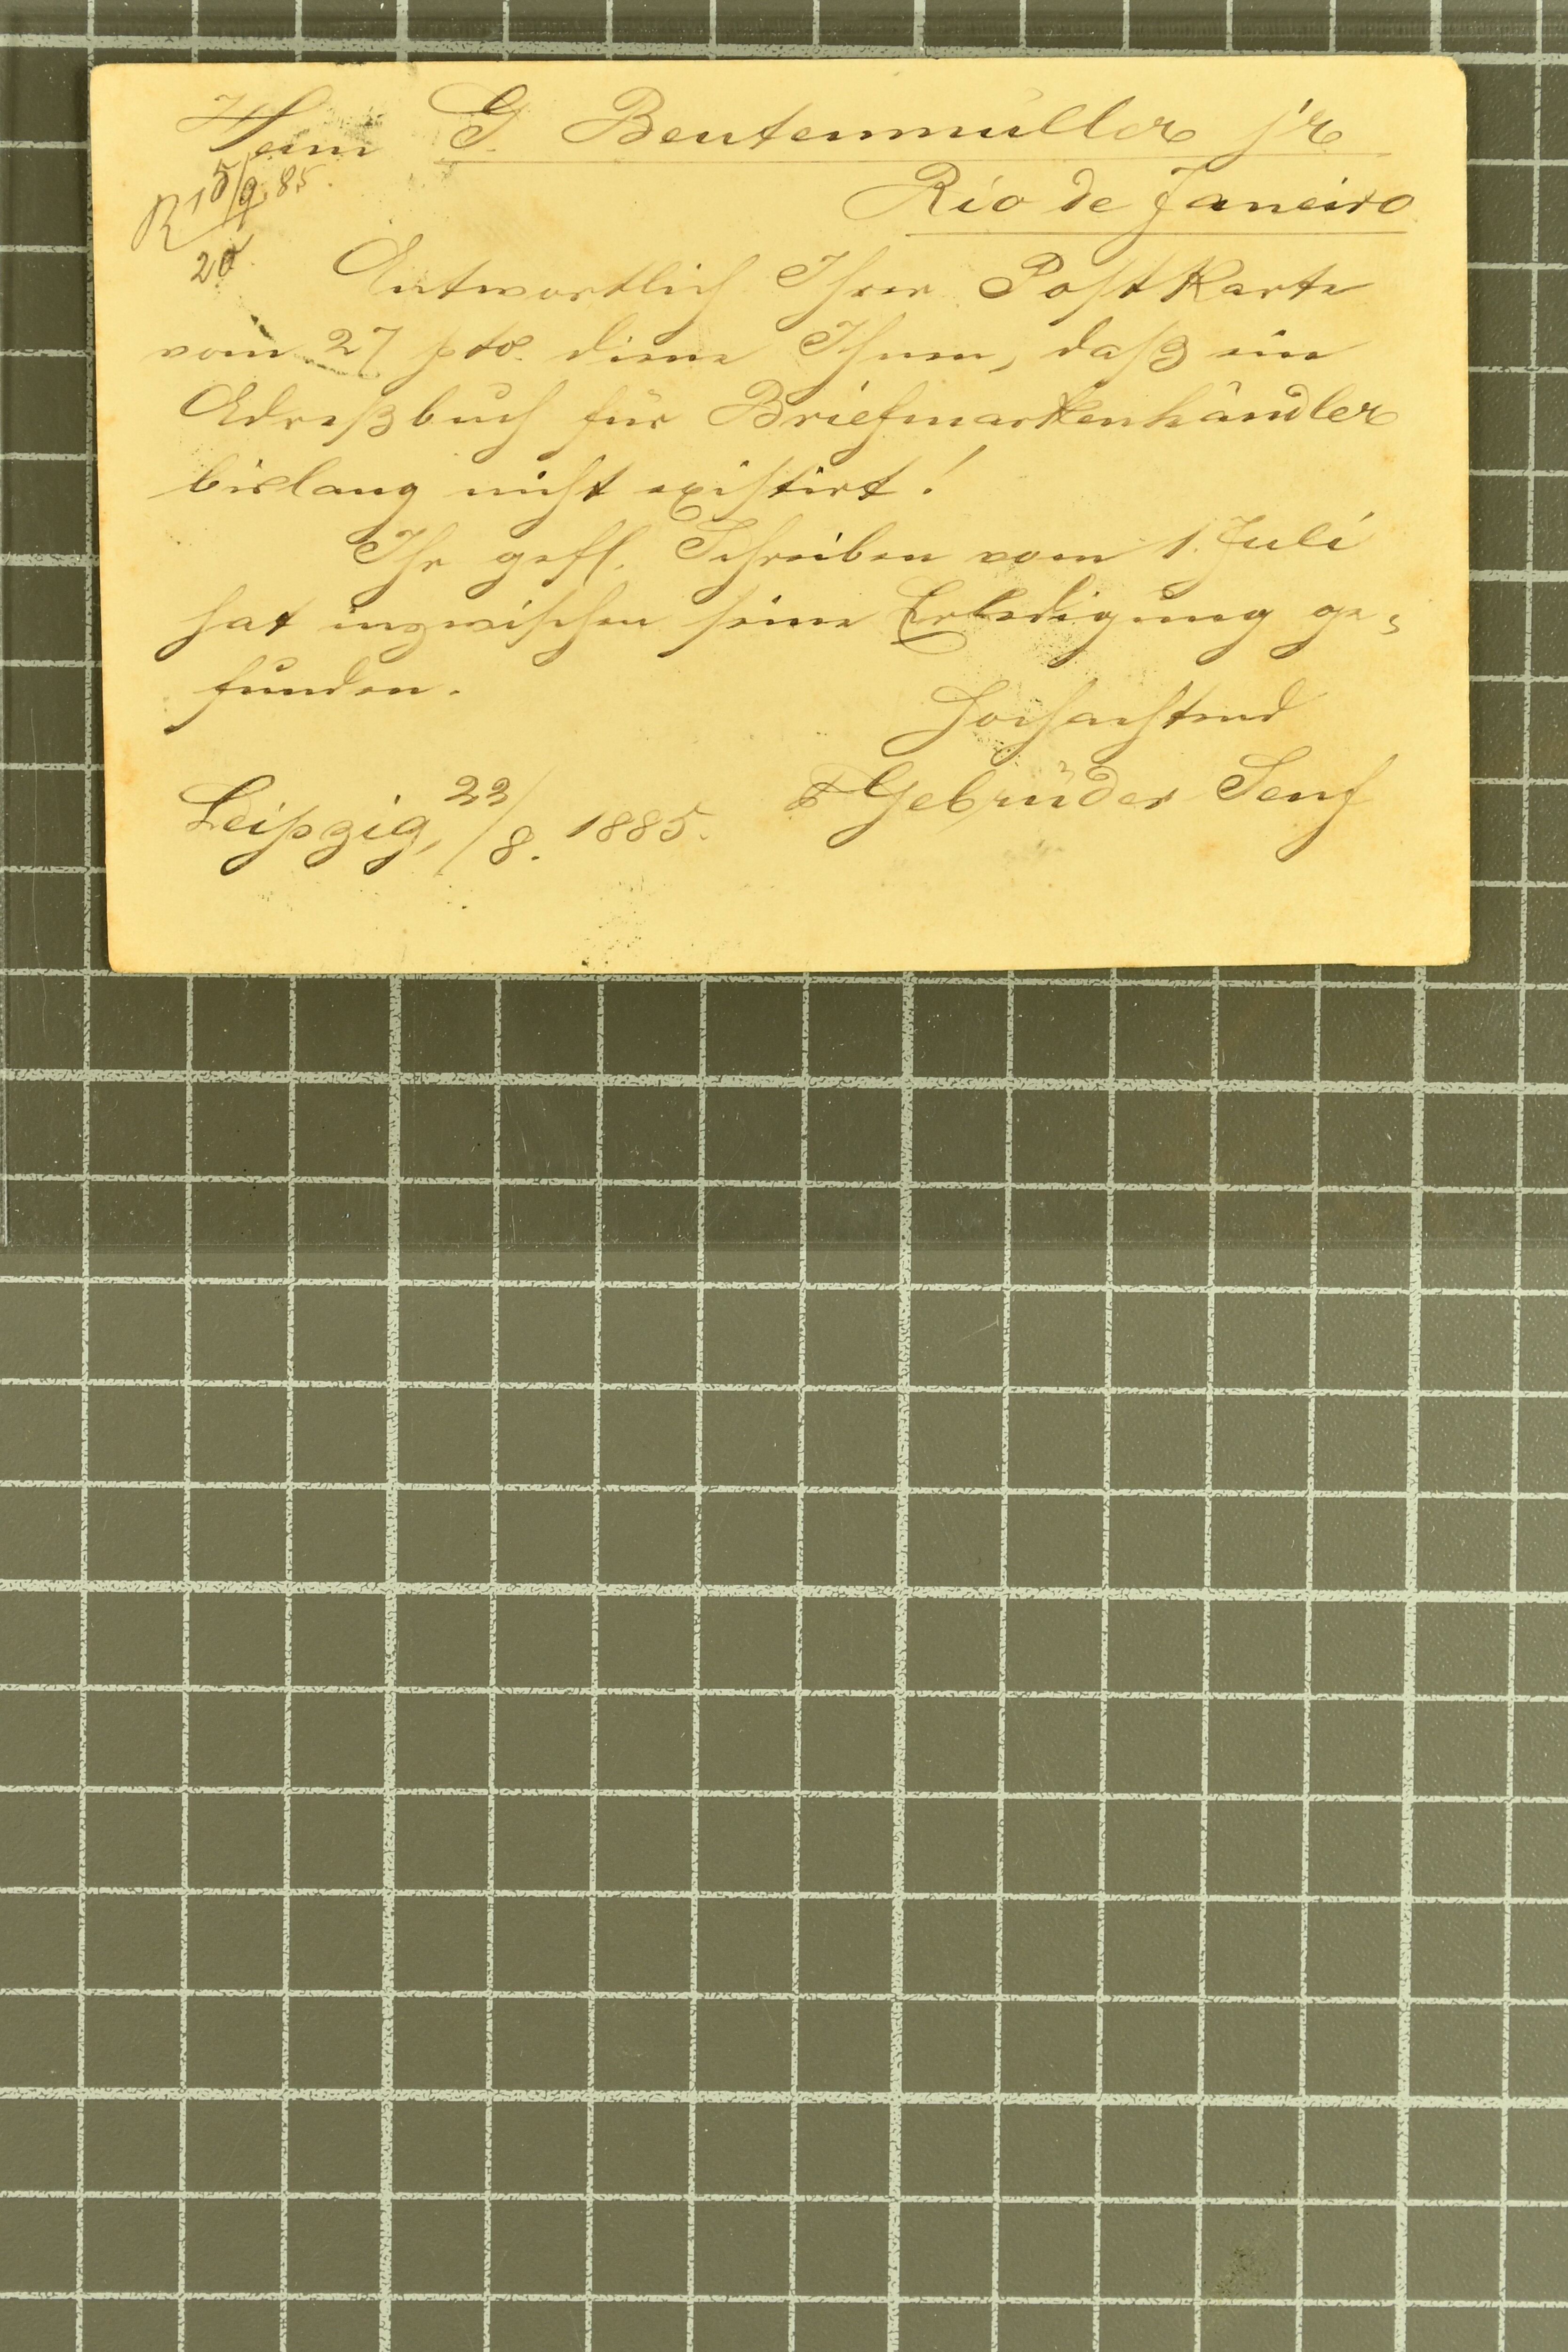 Herrn G. Beutenmüller jr
Rio de Janeiro
R 15/9 85.
20
Antwortlich Ihrer Postkarte
vom 27 pto. diene Ihnen, daß ein
Adreßbuch für Briefmarkenhändler
bislang nicht existirt!
Ihr gefl. Schreiben vom 1. Juli
hat inzwischen seine Erledigung ge-
funden.
Hochachtend
Gebrüder Senf
Leipzig, 22/8. 1885.